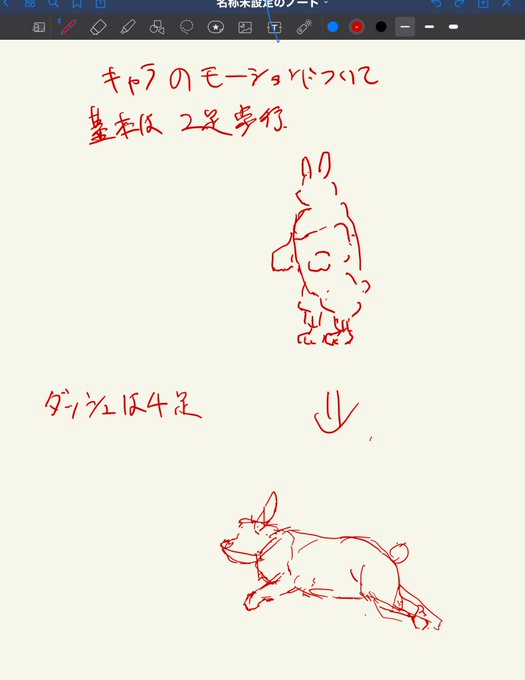 名称未設定のノート
キャラのモーションについて
基本は 2足歩行.
ダッシュは4足